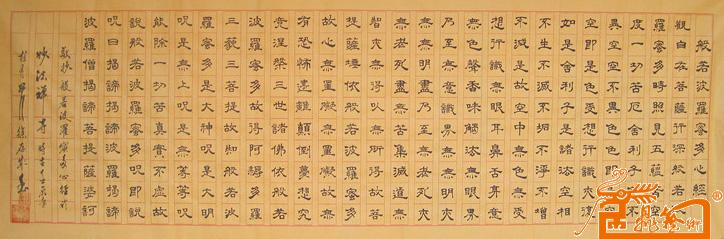 般若波羅蜜多心經
觀自在菩薩行深般若波
羅蜜多時照見五蘊皆空
度一切苦厄舍利子色不
異空空不異色色即是空
空即是色受想行識亦
如是舍利子是諸法空相
不生不滅不垢不淨不增
不減是故空中無色無受
想行識無眼耳鼻舌身意
無色聲香味觸法無眼界
乃至無意識界無無明亦
無無明盡乃至無老死亦
無老死盡無苦集滅道無
智亦無得以無所得故菩
提薩埵依般若波羅蜜多
故心無罣礙無罣礙故無
有恐怖遠離顛倒夢想究
竟涅槃三世諸佛依般若
波羅蜜多故得阿耨多羅
三藐三菩提故知般若波
羅蜜多是大神呪是大明
呪是無上呪是無等等呪
能除一切苦真實不虛故
說般若波羅蜜多呪即說
呪曰揭諦揭諦波羅揭諦
波羅僧揭諦菩提薩婆訶
般若波羅蜜多心經於
妙法禪寺